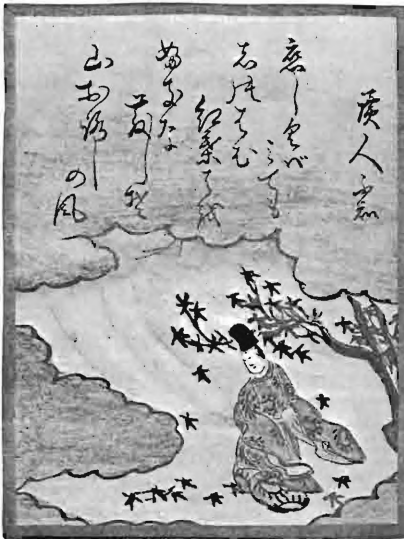 讀人不知
恋しくば
みても
しのはむ
紅葉はを
ふきなち
らしそ
山おろし
の風